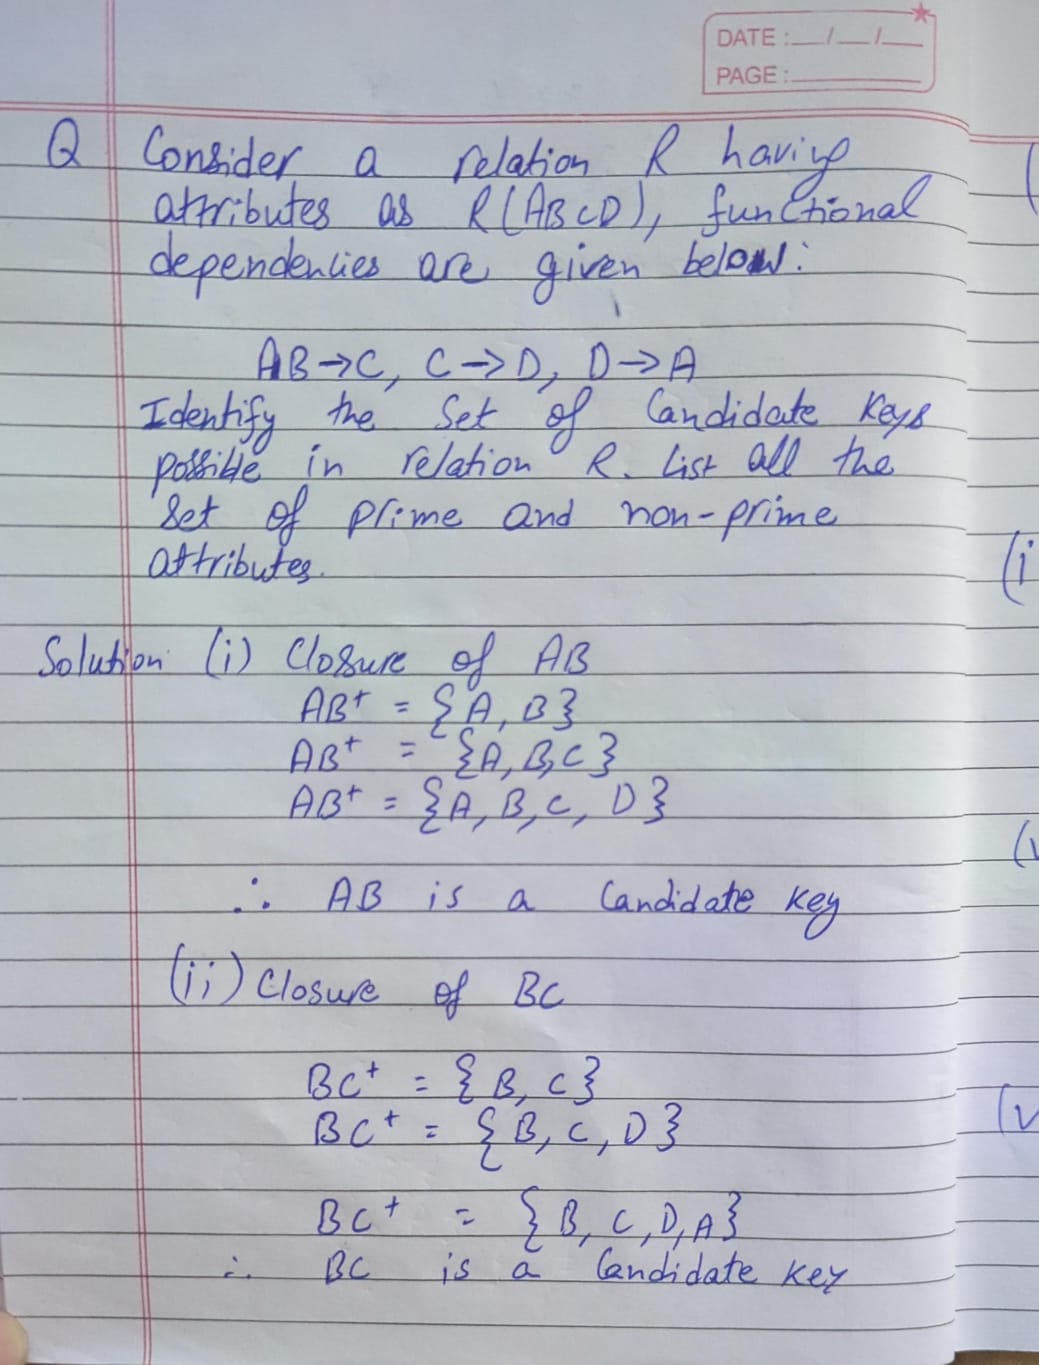 DATE: __/__/__
PAGE:
Q Consider a relation R having
attributes as R(ABCD), functional
dependencies are given below:
AB→C, C→D, D→A
Identify the Set of Candidate Keys
possible in relation R. List all the
Set of prime and non-prime
attributes.
Solution (i) Closure of AB
AB+ = {A, B}
AB+ = {A, B, C}
AB+ = {A, B, C, D}
∴ AB is a Candidate key
(ii) Closure of BC
BC+ = {B, C}
BC+ = {B, C, D}
BC+ = {B, C, D, A}
∴ BC is a Candidate key